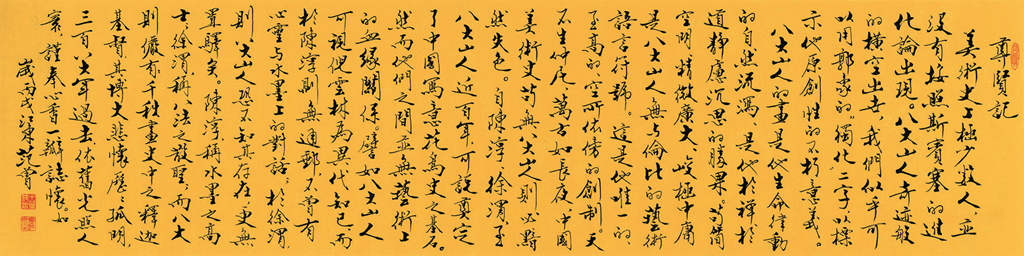 尊賢記
美術史上極少數人，並
沒有按照斯賓塞的進
化論出現。八大山人奇迹般
的橫空出世，我們似乎可
以用郭象的獨化二字以標
示他原創性的不朽意義。
八大山人的畫是他生命律動
的自然流瀉，是他於禪於
道靜慮沉思的勝果。苟簡
空明，精微廣大，峻極中庸
是八大山人無與倫比的藝術
語言符號。這是他唯一的、
至高的、空所依傍的創制。天
不生仲尼，萬古如長夜，中國
美術史苟無八大山人則必黯
然失色。自陳淳徐渭至
八大山人近百年，可說奠定
了中國寫意花鳥史之基石。
然而他們之間並無藝術上
的血緣關係。譬如八大山人
可視倪雲林為異代知己，而
於陳淳則無通郵，不曾有
心靈與水墨上的對話。於徐渭，
則八大山人恐不知其存在，更無
置驛矣。陳淳稱水墨之高
士，徐渭稱八法之散聖，而八大
則儼有千秋畫史中之釋迦
基督，其博大悲懷，歷歷孤明，
三百八年過去依舊光照人
寰，謹奉一瓣誌懷。如
歲丙戌江東范曾